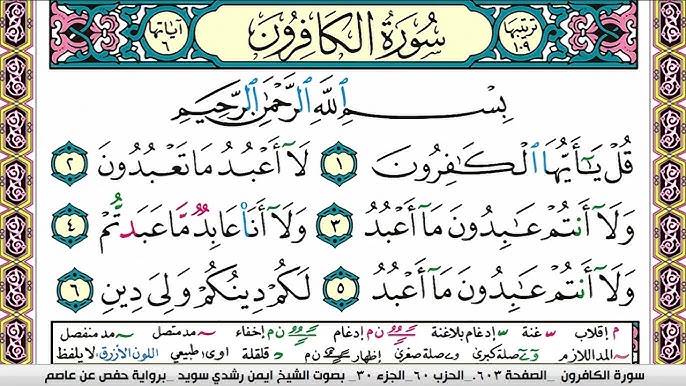 ترتيبها ١٠٩ سُورَةُ الكَافِرُونَ آياتها ٦
بِسْمِ ٱللَّهِ ٱلرَّحْمَٰنِ ٱلرَّحِيمِ
قُلْ يَٰٓأَيُّهَا ٱلْكَٰفِرُونَ ١ لَآ أَعْبُدُ مَا تَعْبُدُونَ ٢
وَلَآ أَنتُمْ عَٰبِدُونَ مَآ أَعْبُدُ ٣ وَلَآ أَنَا۠ عَابِدٌ مَّا عَبَدتُّمْ ٤
وَلَآ أَنتُمْ عَٰبِدُونَ مَآ أَعْبُدُ ٥ لَكُمْ دِينُكُمْ وَلِىَ دِينِ ٦
م إقلاب غنة إدغام بلاغنة ن م إدغام ن م إخفاء مد متصل مد منفصل
المد اللازم صلة كبرى صلة صغرى إظهار ن م قلقلة ٢ او طبيعي اللون الأزرق لا يلفظ
سورة الكافرون _الصفحة ٦٠٣. _الحزب ٦٠ _الجزء ٣٠_ بصوت الشيخ ايمن رشدي سويد _برواية حفص عن عاصم